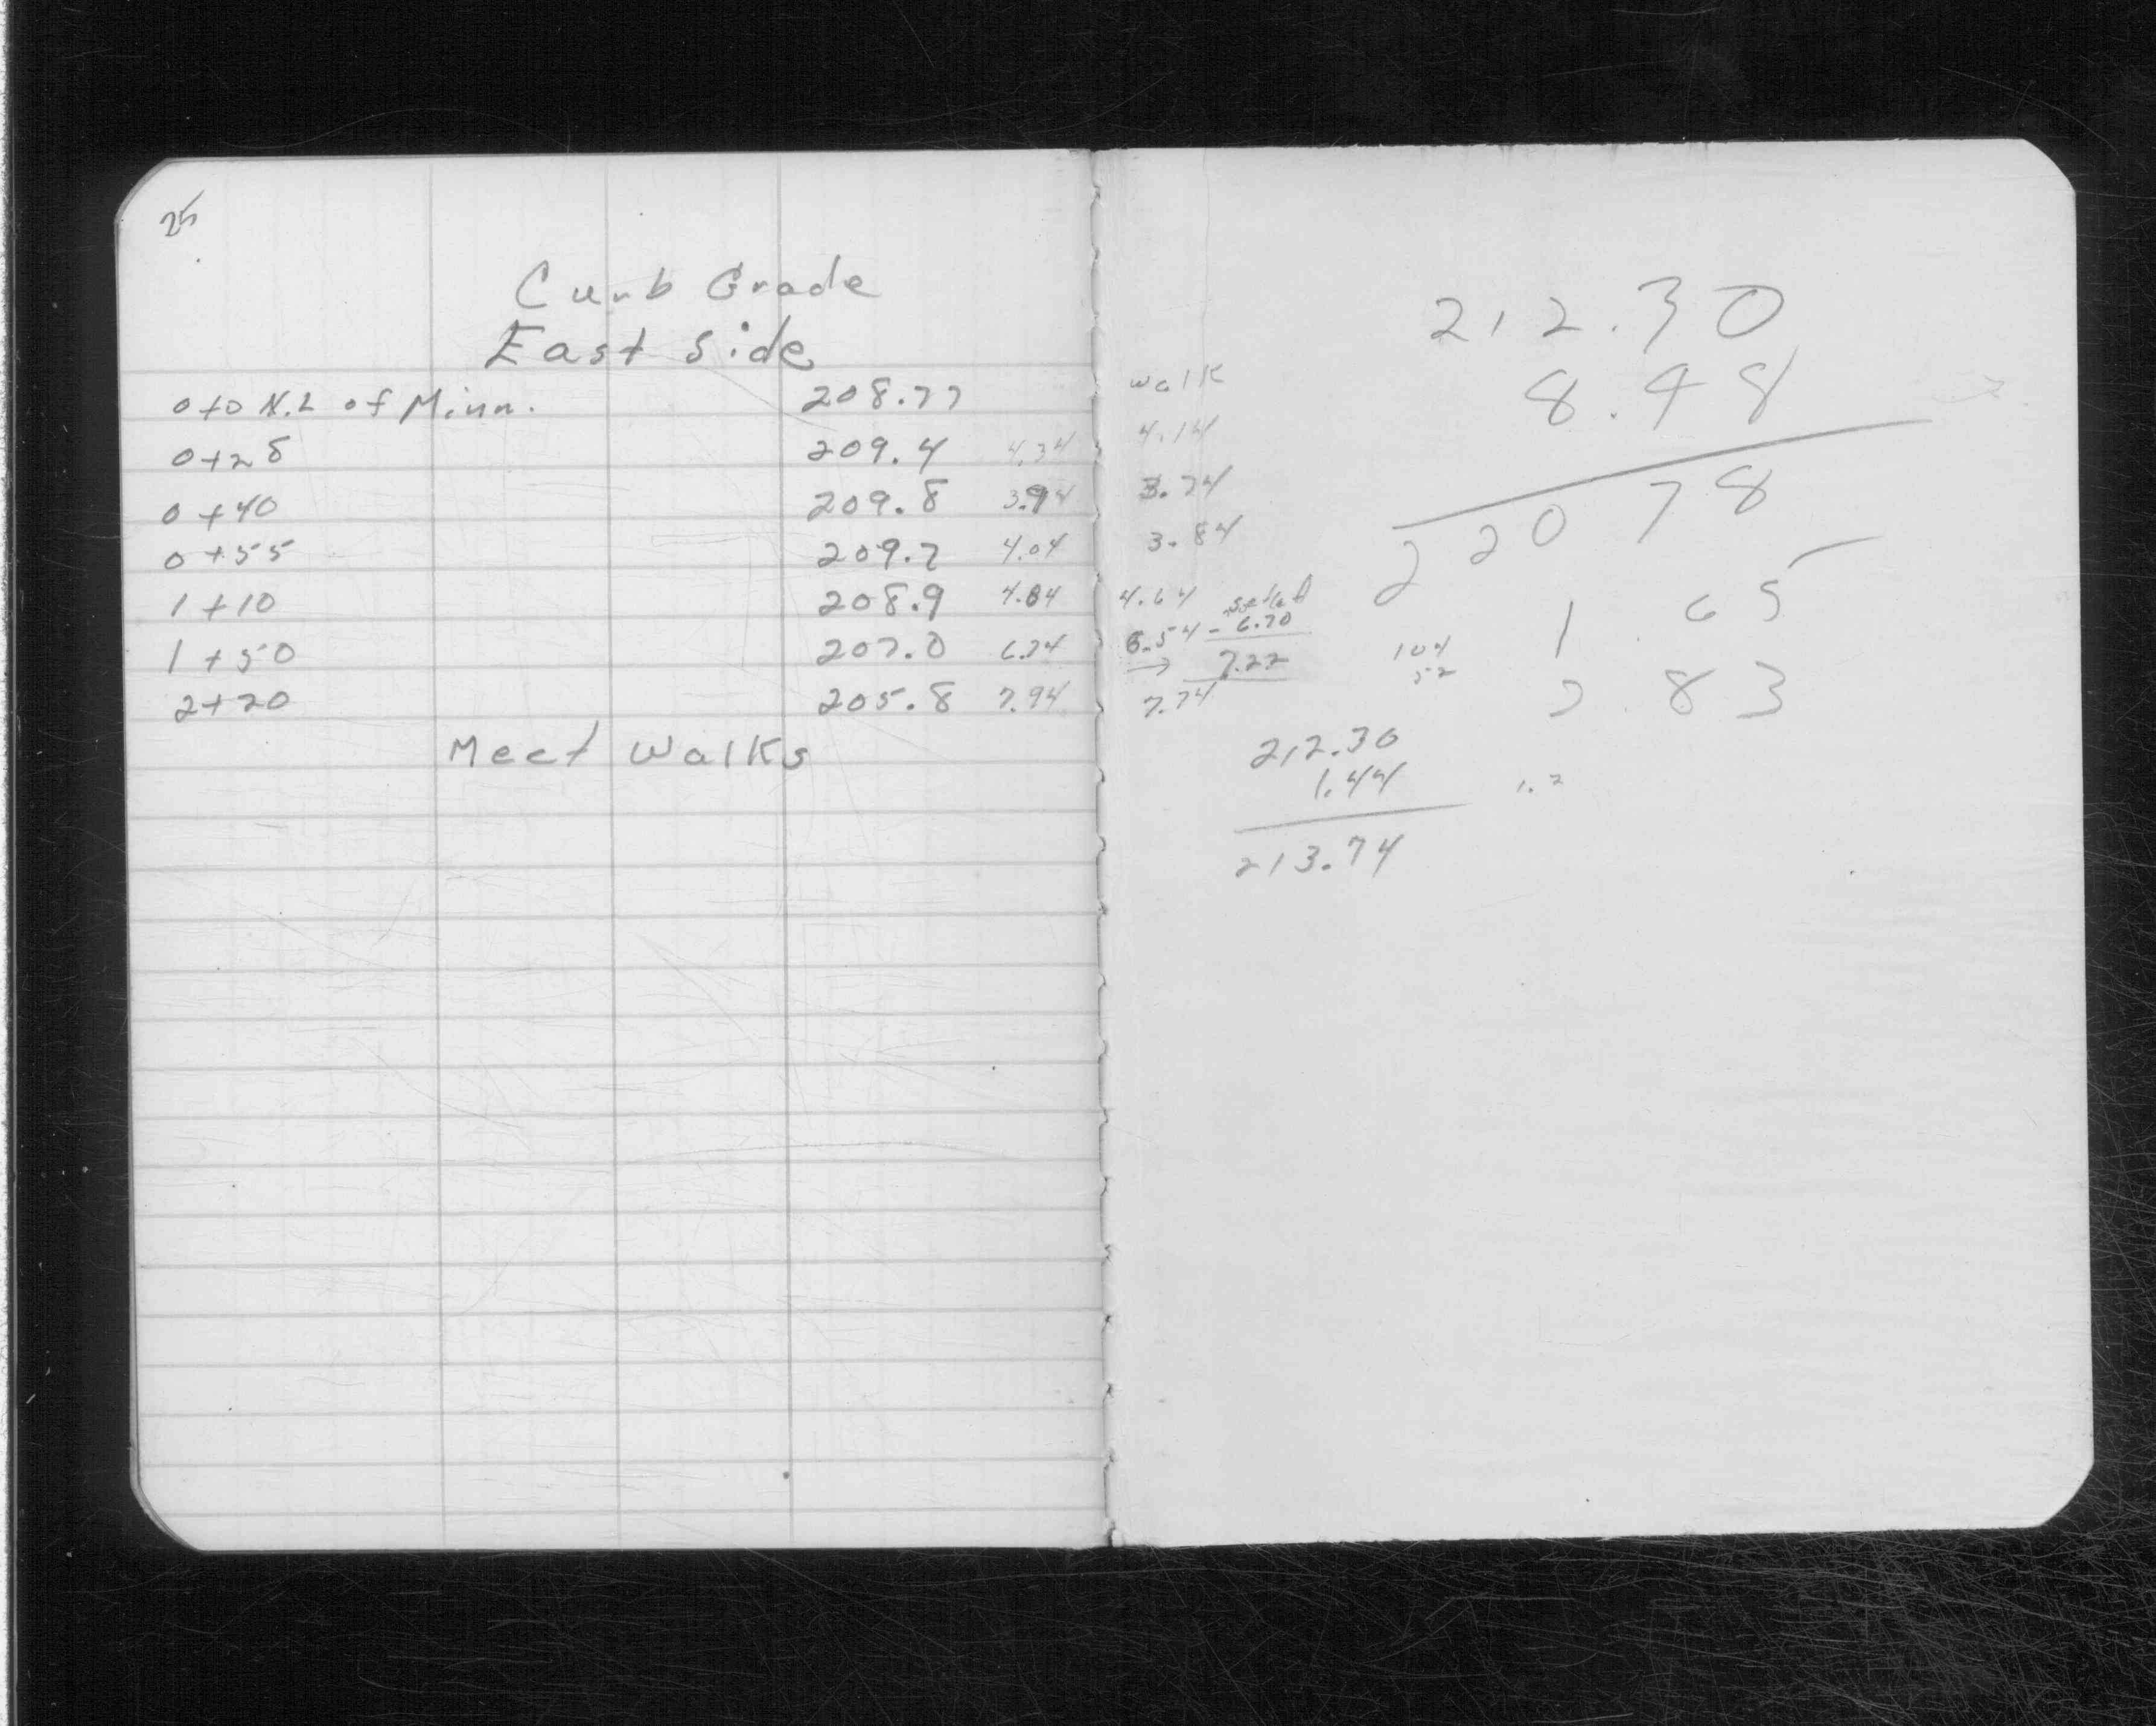 25
Curb Grade
East Side
0+0 N.L of Minn. 208.77
0+28 209.4 4.34
0+40 209.8 3.94
0+55 209.7 4.04
1+10 208.9 4.84
1+50 207.0 6.74
2+20 205.8 7.94
Meet Walks
walk
4.14
3.74
3.84
4.64
6.54 - 6.70
→ 7.22
7.74
212.30
8.48
220 78
1.65
2.83
104
52
212.30
1.44
213.74
1.2